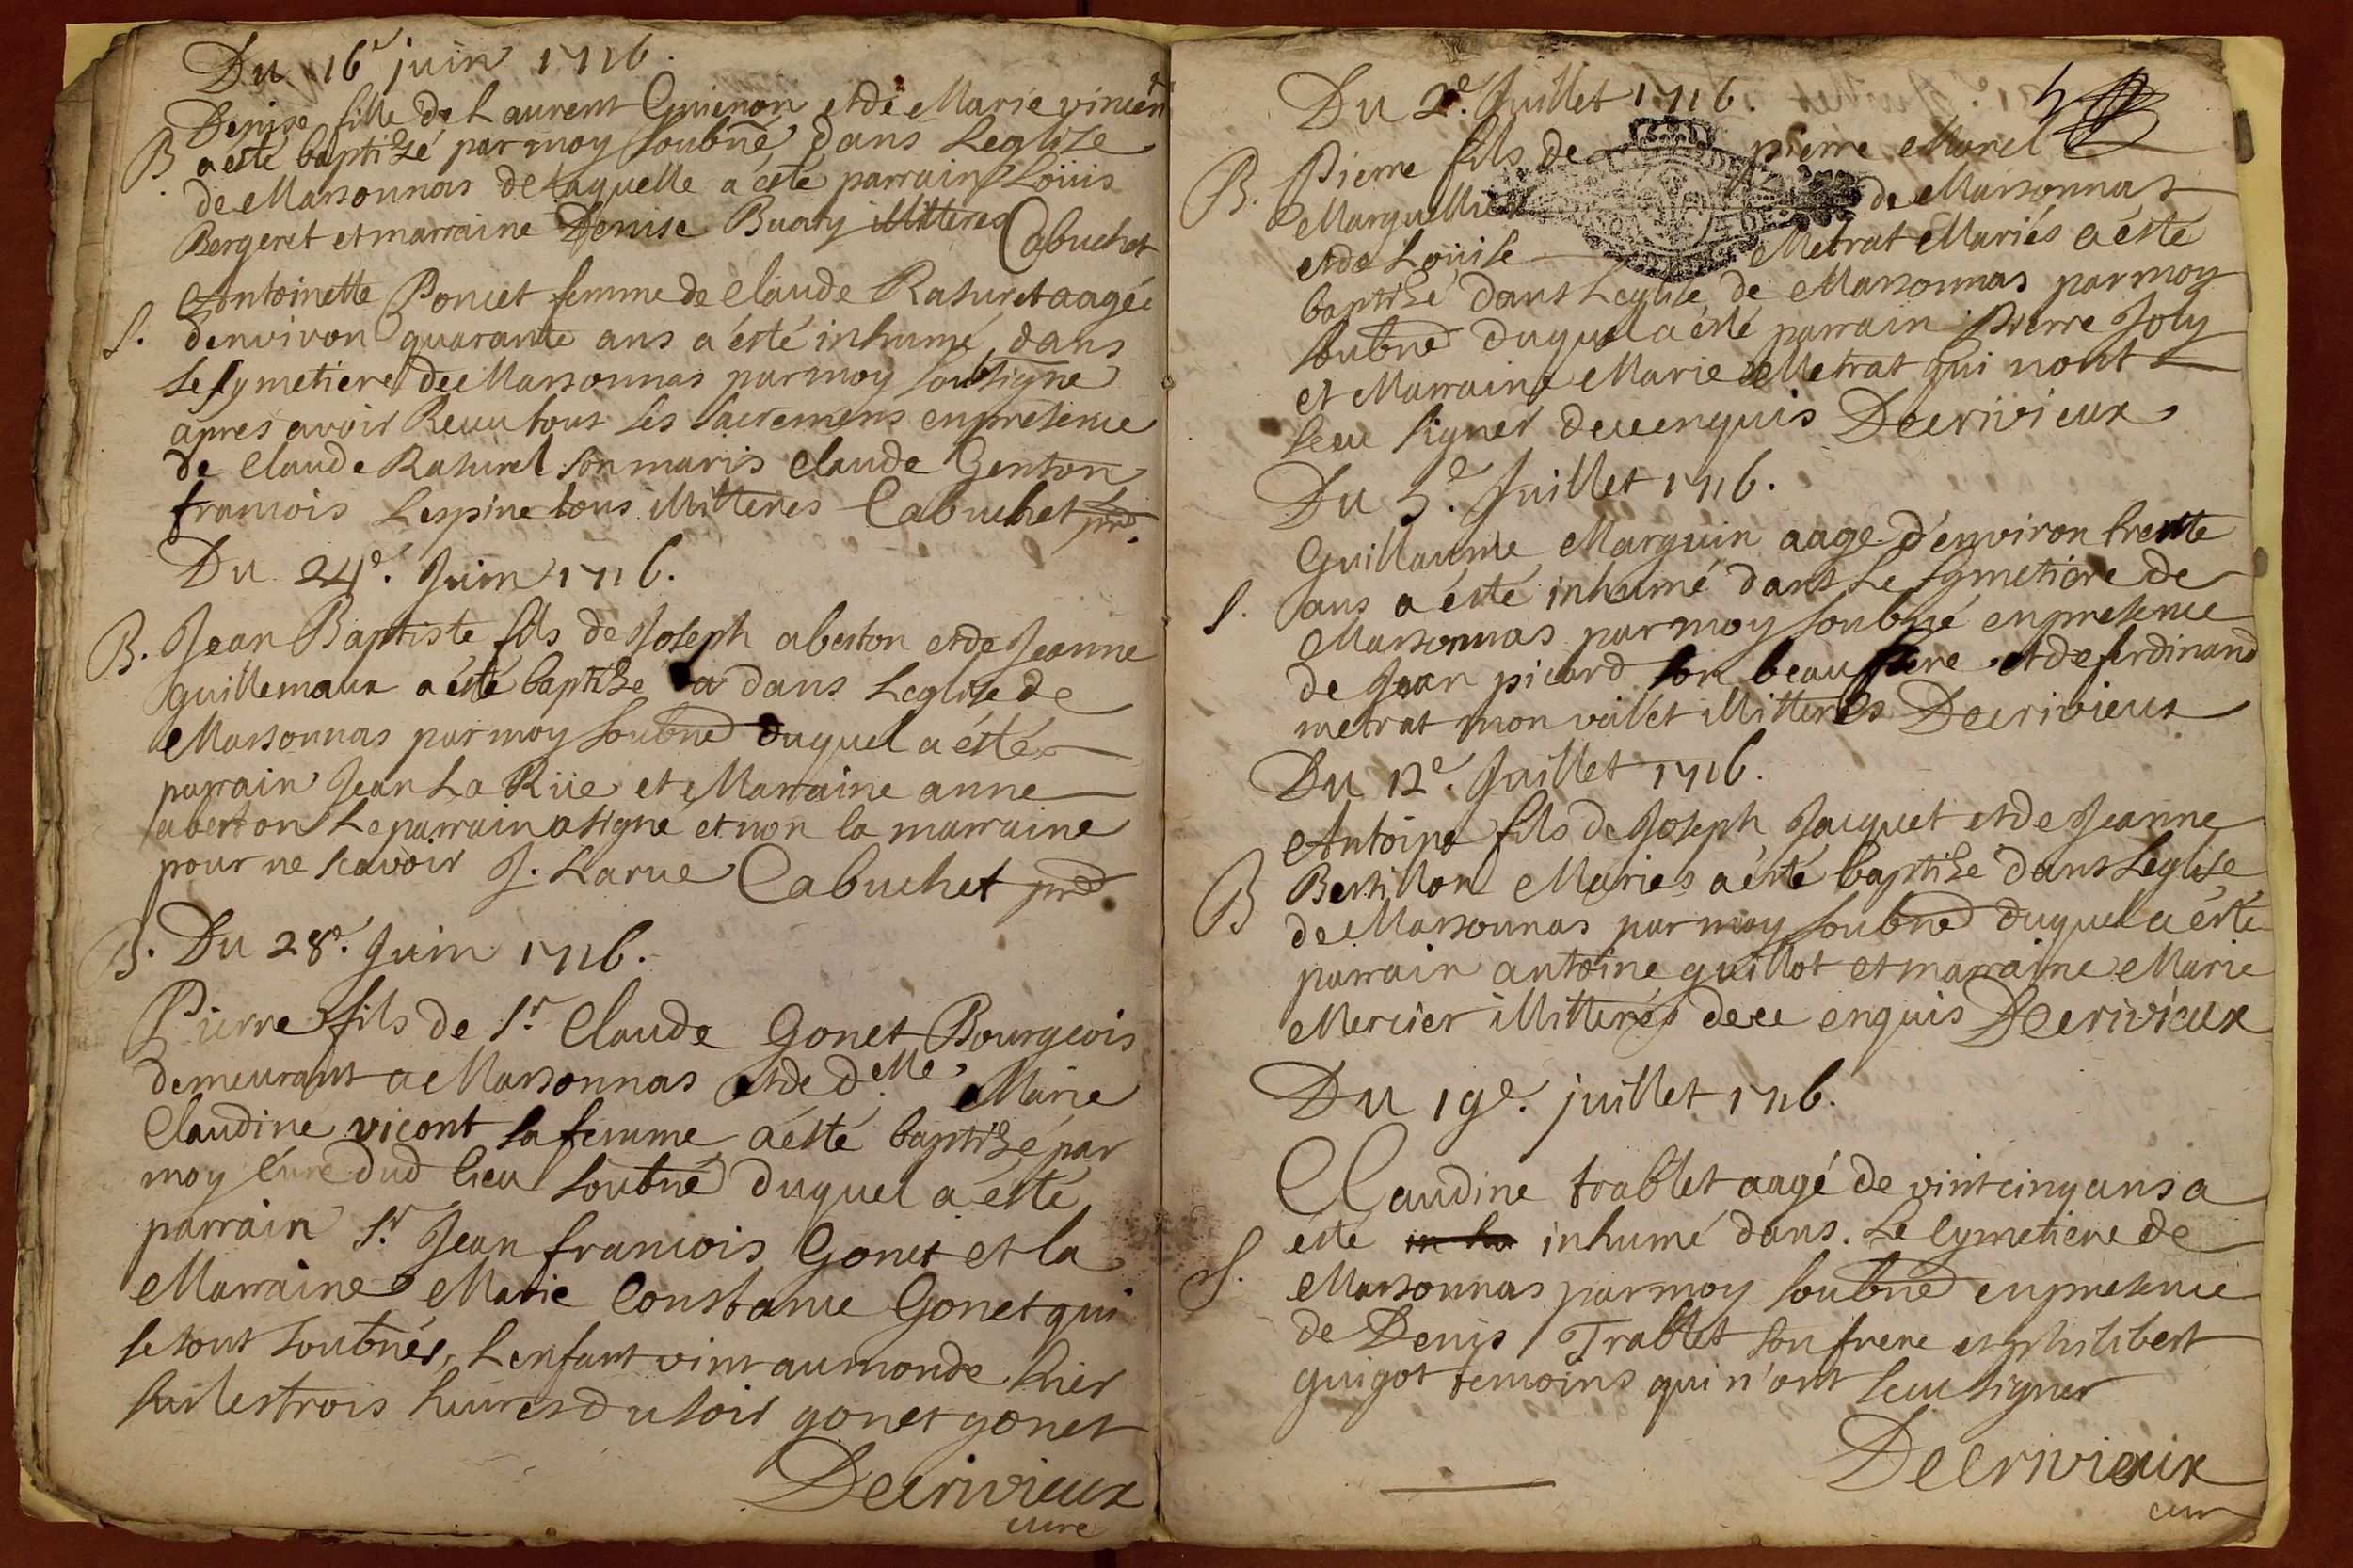 Du 16e juin 1716.
Denise fille de Laurent Guienon et de Marie vincen
B a esté baptisé par moy soubné dans Leglise
de Marsonnas de laquelle a esté parrain Loüis
Bergeret et marraine Denise Buaty illitteres Cabuchet
Antoinette Poncet femme de Claude Raturet aagée
S. denviron quarante ans a ésté inhumé dans
Le Symetiere de Marsonnas par moy soubsigne
apres avoir Receu tous les sacremens en presence
de Claude Raturel son maris Claude Genton
francois Lespine tous illitteres Cabuchet ptre.
Du 24e. Juin 1716.
B. Jean Baptiste fils de Joseph aberton et de Jeanne
guillemaux a ésté baptisé a dans Leglise de
Marsonnas par moy soubné duquel a ésté
parrain Jean La Rüe et Marraine anne
aberton Le parrain a signe et non la marraine
pour ne scavoir J. Larue Cabuchet ptre
B. Du 28e. Juin 1716.
Pierre fils de Sr. Claude Gonet Bourgeois
demeurant a Marsonnas et de d.elle Marie
Claudine vicont sa femme a ésté baptisé par
moy Curé dud lieu soubné duquel a ésté
parrain Sr. Jean francois Gonet et la
Marraine Marie Constance Gonet qui
se sont soubnés, Lenfant vint au monde hier
sur les trois heures du soir gonet gonet
Decrivieux
cure
Du 2e. Juillet 1716. 5
B. Pierre fils de pierre Morel
Marguillier de Marsonnas
et de Loüise Metrat Mariés a ésté
baptisé dans Leglise de Marsonnas par moy
soubné duquel a ésté parrain Pierre Joly
et Marraine Marie Metrat qui nont
sceu signer de ce enquis Decrivieux
Du 5e. Juillet 1716.
Guillaume Marguin aage d'environ trente
S. ans a ésté inhumé dans Le Symetiere de
Marsonnas par moy soubné en presence
de Jean picard son beau frere et de ferdinand
metrat mon valet illitteres Decrivieux
Du 12e. Juillet 1716.
Antoine fils de Joseph Jacquet et de Jeanne
B Bertillon Mariés a ésté baptisé dans Leglise
de Marsonnas par moy soubné duquel a ésté
parrain antoine guillot et marraine Marie
Mercier illitterés de ce enquis Decrivieux
Du 19e. juillet 1716.
Claudine trablet aagé de vint cinq ans a
esté in hu inhumé dans. Le Cymetiere de
S. Marsonnas par moy soubné en presence
de Denis Trablet son frere et philibert
guigot temoins qui n'ont sceu signer
Decrivieux
cure